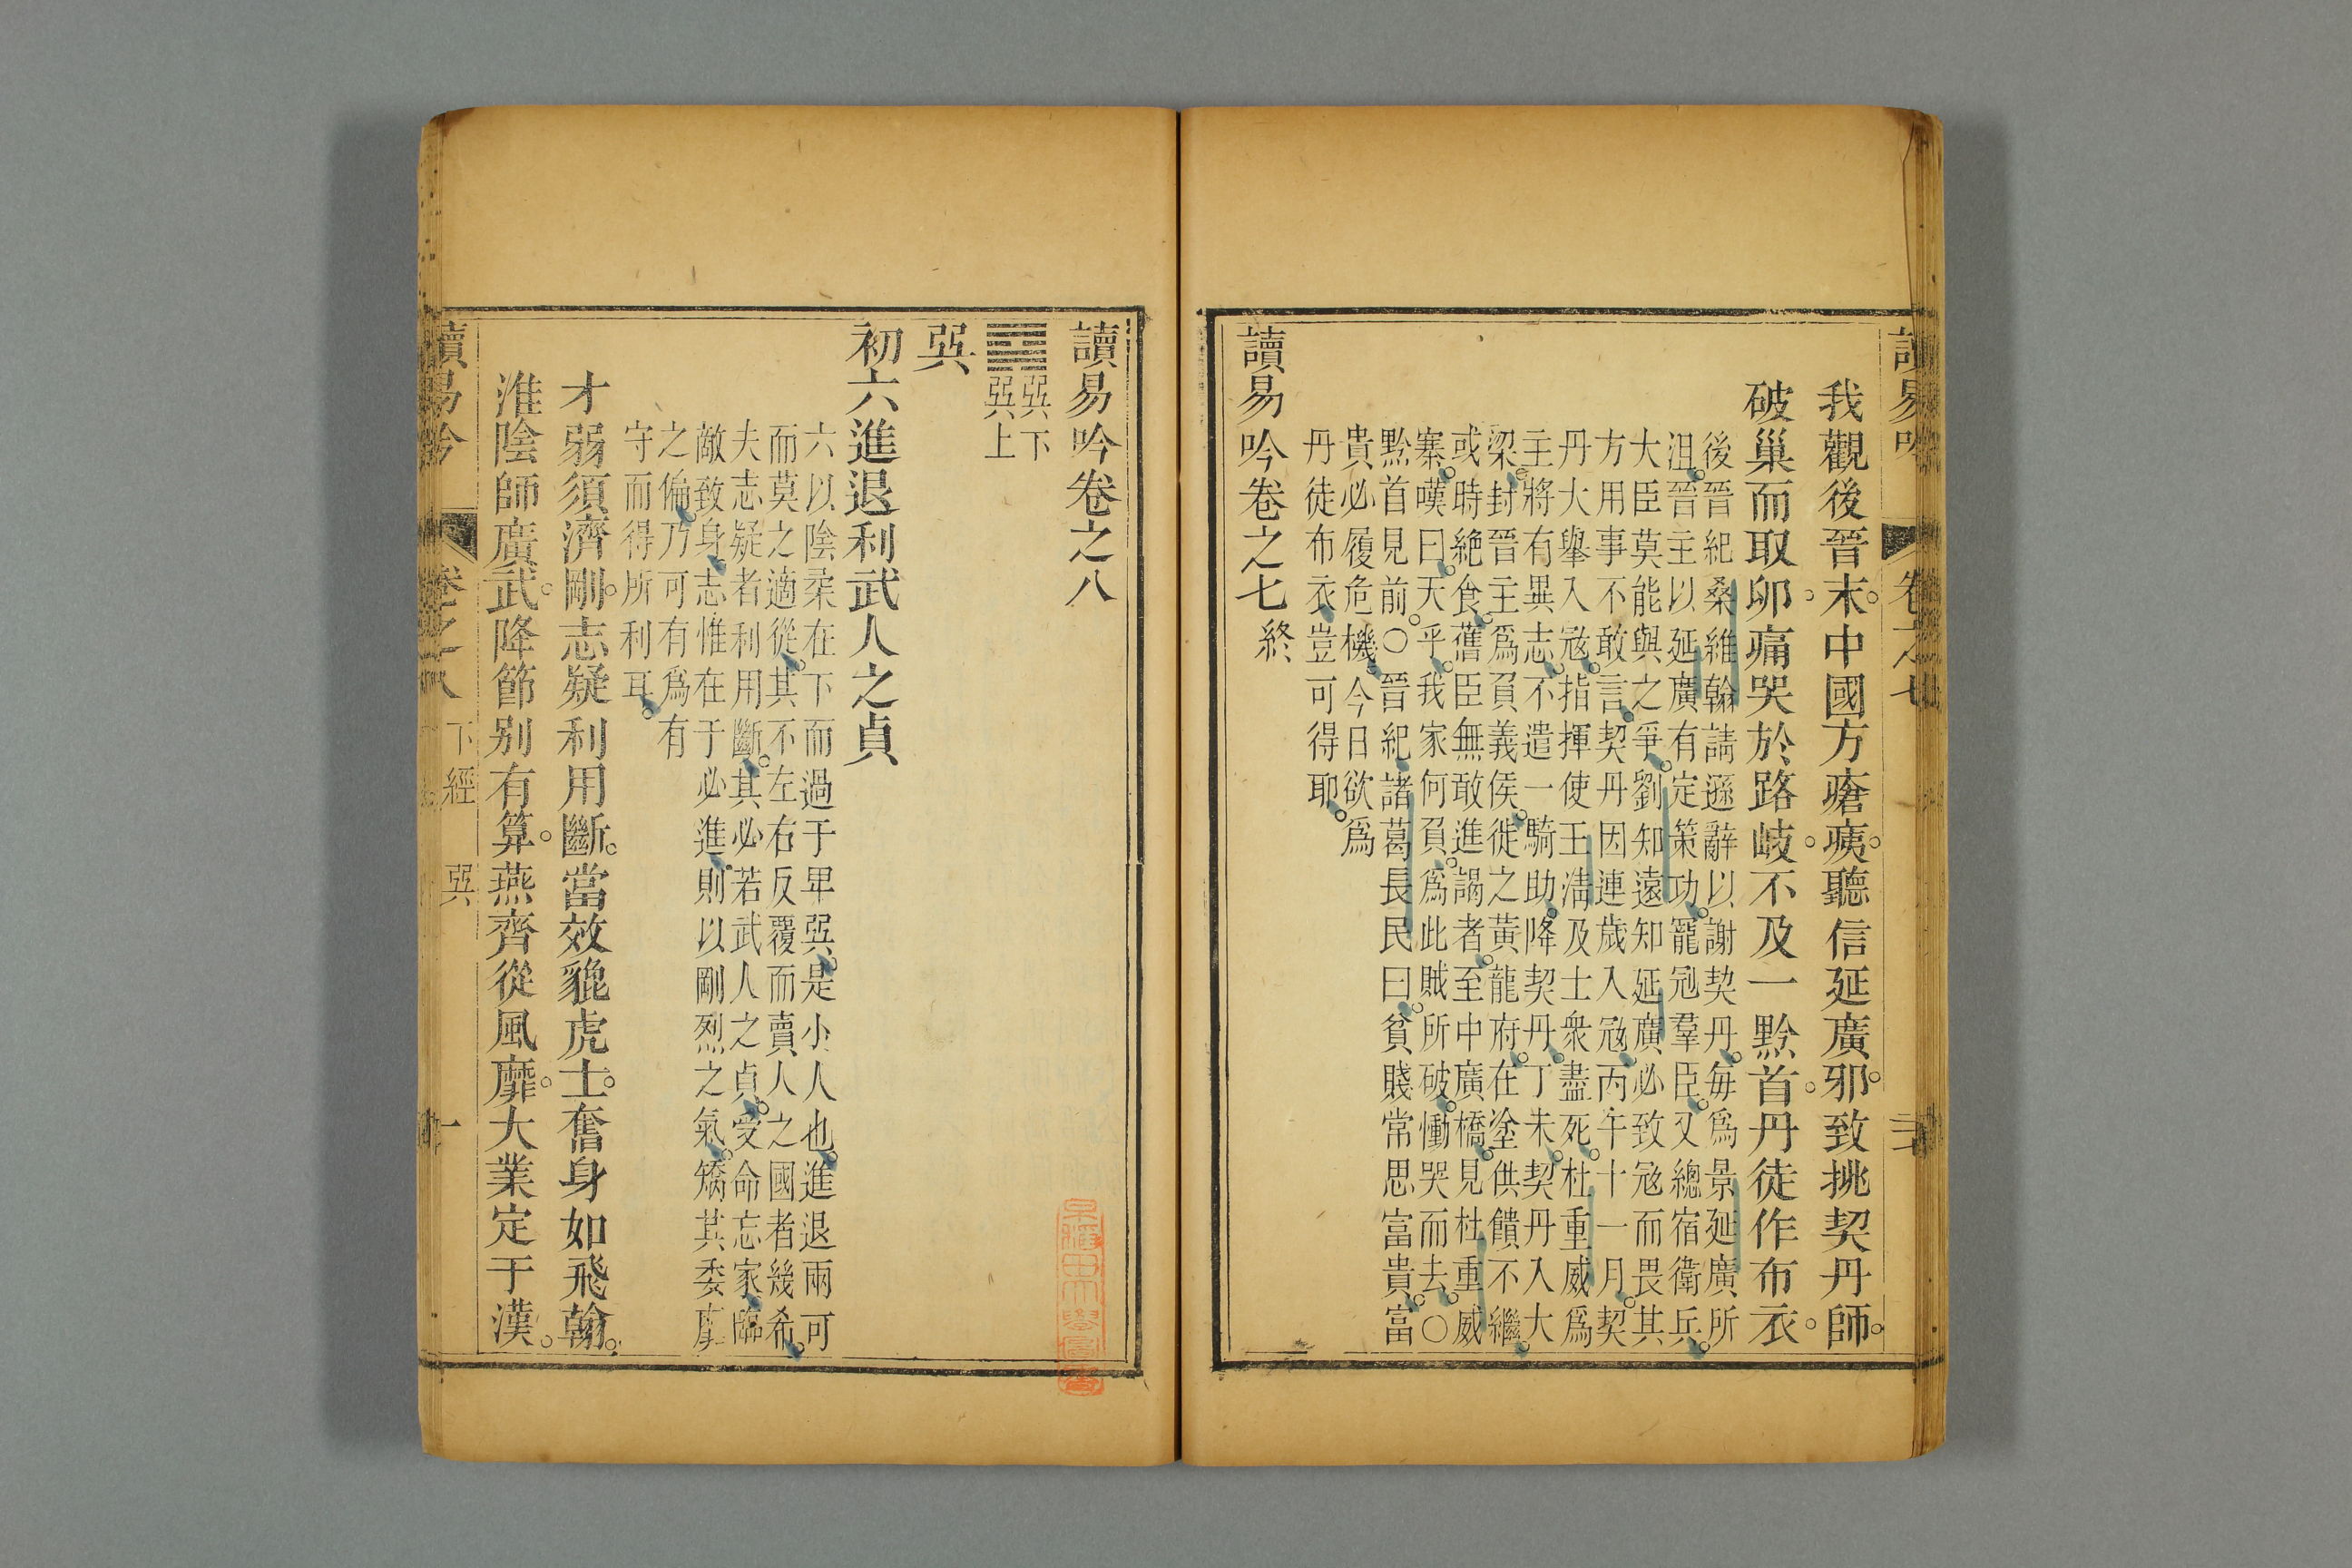 我觀後晉末中國方瘡痍聽信延廣邪致挑契丹師
破巢而取卵痛哭於路岐不及一黔首丹徒作布衣
後晉紀桑維翰請遜辭以謝契丹每爲景延廣所
沮晉主以延廣有定策功寵冠羣臣又總宿衛兵
大臣莫能與之爭劉知遠知延廣必致寇而畏其
方用事不敢言契丹因連歲入寇丙午十一月契
丹大舉入寇指揮使王清及士衆盡死杜重威爲
主將有異志不遣一騎助降契丹丁未契丹入大
梁封晉主爲負義侯徙之黃龍府在塗供饋不繼
或時絕食舊臣無敢進謁者至中廣橋見杜重威
寨嘆曰天乎我家何負爲此賊所破慟哭而去〇
黔首見前〇晉紀諸葛長民曰貧賤常思富貴富
貴必履危機今日欲爲
丹徒布衣豈可得耶
讀易吟卷之七終
讀易吟卷之八
巽下
巽上
巽
初六進退利武人之貞
六以陰柔在下而過于卑巽是小人也進退兩可
而莫之適從其不左右反覆而賣人之國者幾希
夫志疑者利用斷其必若武人之貞受命忘家臨
敵致身志惟在于必進則以剛烈之氣矯其委靡
之偏乃可有爲有
守而得所利耳
才弱須濟剛志疑利用斷當效貔虎士奮身如飛翰
淮陰師廣武降節別有算燕齊從風靡大業定于漢
讀易吟 卷之八 下經 巽 一